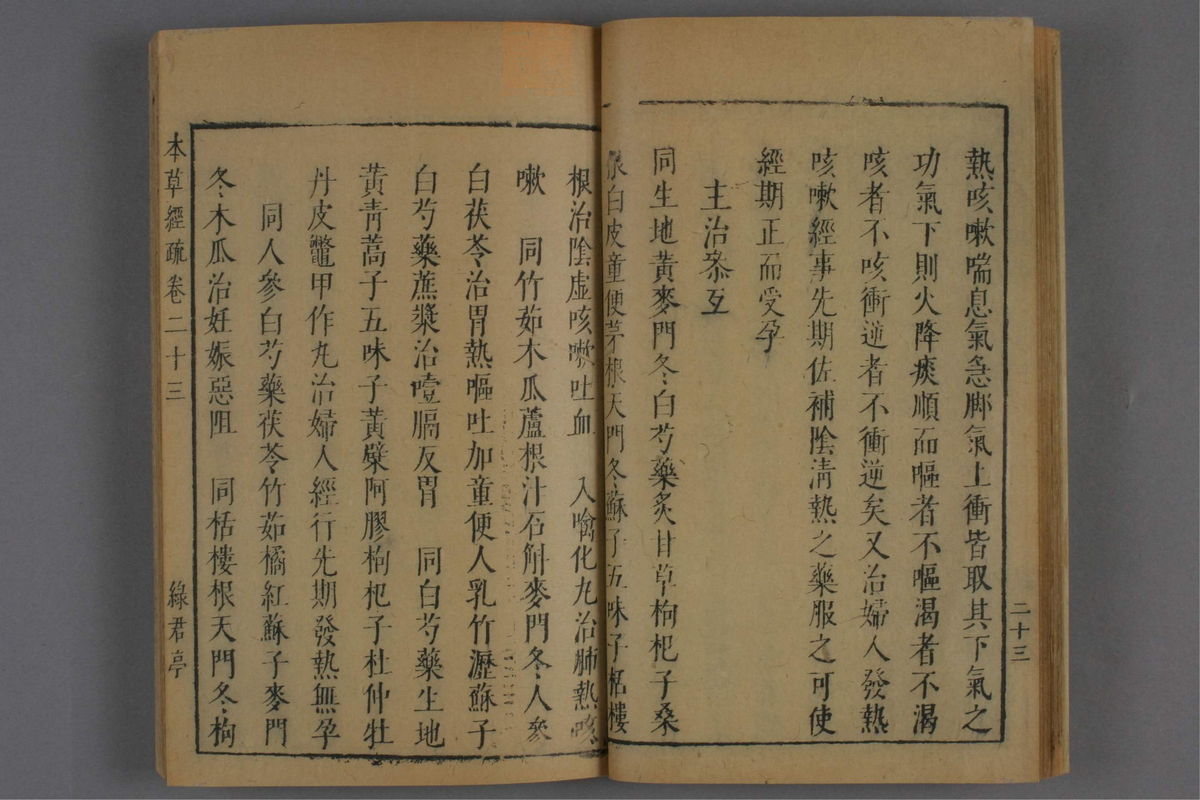 熱咳嗽喘息氣急脚氣上衝皆取其下氣之
功氣下則火降痰順而嘔者不嘔渴者不渴
咳者不咳衝逆者不衝逆矣又治婦人發熱
咳嗽經事先期佐補陰淸熱之藥服之可使
經期正而受孕
主治叅互
同生地黃麥門冬白芍藥炙甘草枸杞子桑
根白皮童便茅根天門冬蘇子五味子栝樓
二十三
根治陰虛咳嗽吐血　入噙化丸治肺熱咳
嗽　同竹茹木瓜蘆根汁石斛麥門冬人參
白茯苓治胃熱嘔吐加童便人乳竹瀝蘇子
白芍藥蔗漿治噎膈反胃　同白芍藥生地
黃靑蒿子五味子黃檗阿膠枸杞子杜仲牡
丹皮鼈甲作丸治婦人經行先期發熱無孕
同人參白芍藥茯苓竹茹橘紅蘇子麥門
冬木瓜治妊娠惡阻　同栝樓根天門冬枸
本草經疏卷二十三
綠君亭